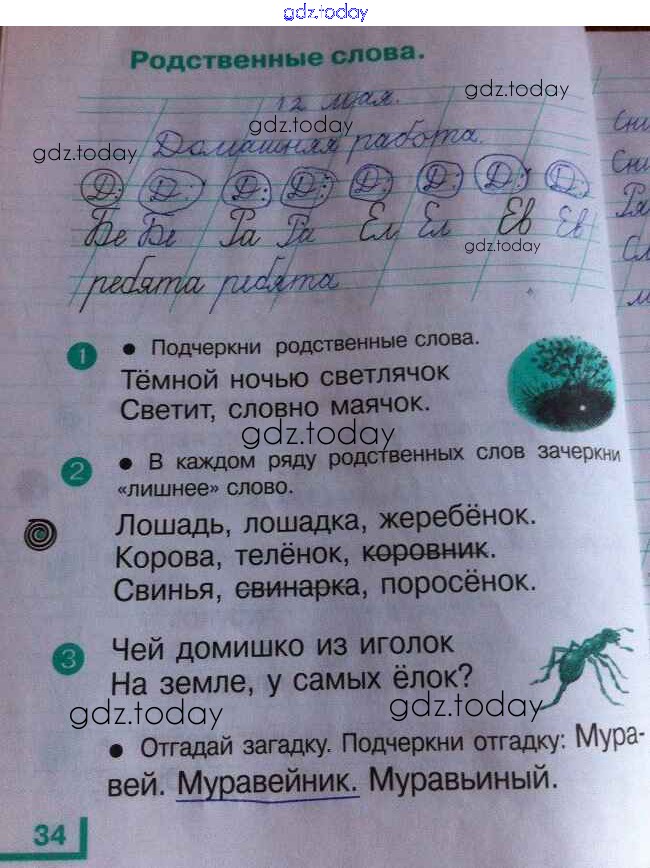 gdz.today
Родственные слова.
gdz.today
12 мая.
gdz.today
Домашняя работа.
gdz.today
Д: Д: Д: Д: Д: Д: Д: Д:
Бе Бе Ра Ра Ел Ел Ев Ев
gdz.today
ребята ребята
1 • Подчеркни родственные слова.
Тёмной ночью светлячок
Светит, словно маячок.
gdz.today
2 • В каждом ряду родственных слов зачеркни
«лишнее» слово.
Лошадь, лошадка, жеребёнок.
Корова, телёнок, коровник.
Свинья, свинарка, поросёнок.
3 Чей домишко из иголок
На земле, у самых ёлок?
gdz.today
gdz.today
• Отгадай загадку. Подчеркни отгадку: Мура-
вей. Муравейник. Муравьиный.
34